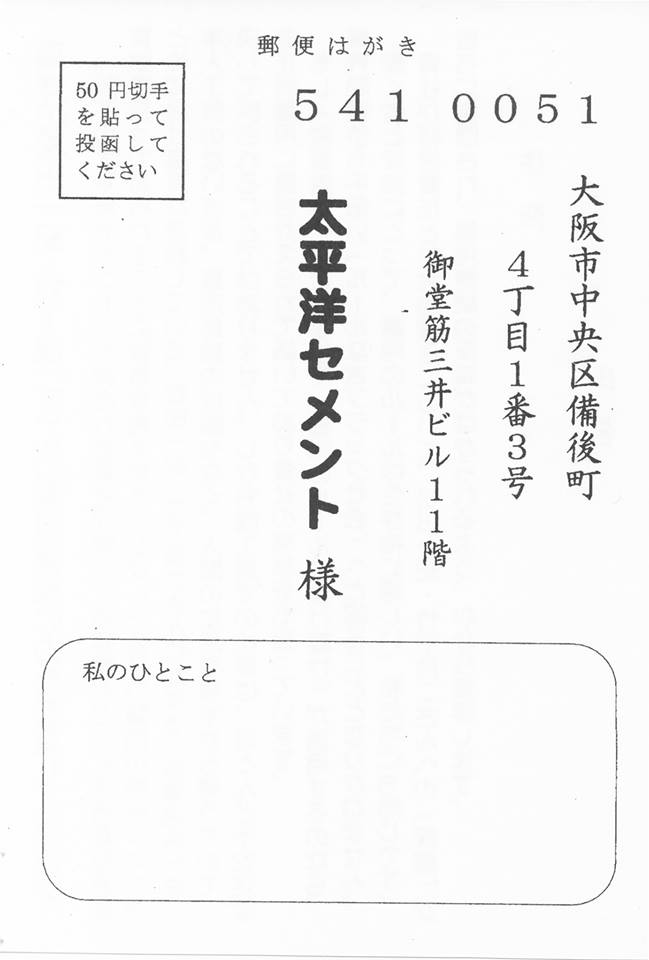 郵便はがき
50円切手
を貼って
投函して
ください
541 0051
大阪市中央区備後町
4丁目1番3号
御堂筋三井ビル11階
太平洋セメント 様
私のひとこと